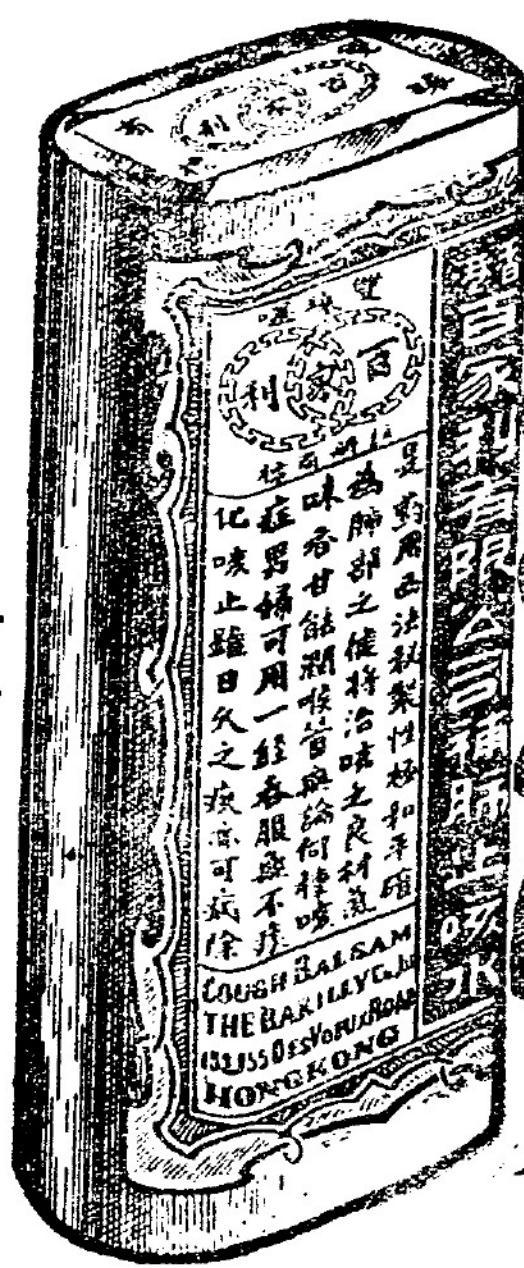 百家利
百家利有限公司補肺止咳水
雙球嘜
百家利
是藥用西法秘製性極和平確
為肺部之健將治咳之良材氣
味香甘能潤喉管無論何種咳
症男婦可用一經吞服無不痰
化咳止雖日久之疾亦可除
COUGH BALSAM
THE BAKILLY Co. Ltd
DES VOEUX ROAD
HONGKONG